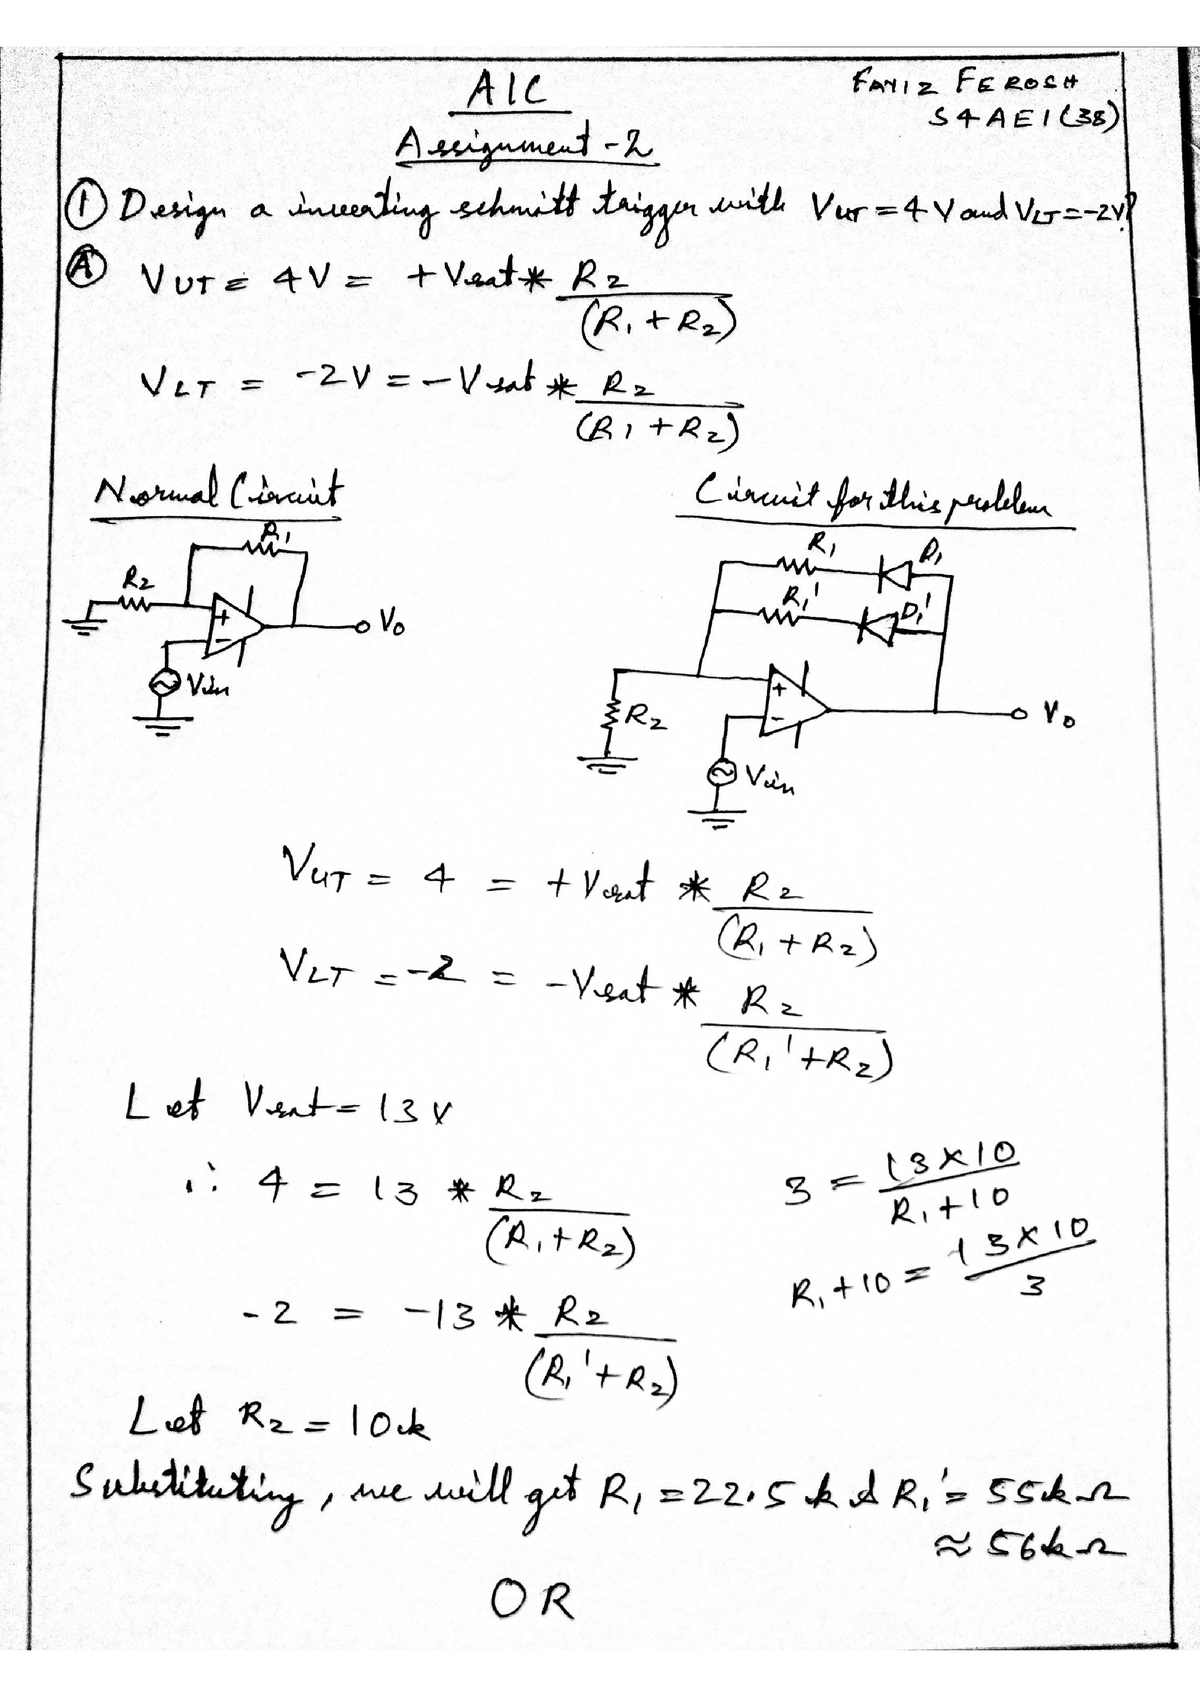 AIC
FAYIZ FEROSH
S4 AEI (38)
Assignment - 2
① Design a inverting schmitt trigger with VUT = 4V and VLT = -2V?
Ⓐ VUT = 4V = +Vsat * R2
(R1 + R2)
VLT = -2V = -Vsat * R2
(R1 + R2)
Normal Circuit
Circuit for this problem
R1
R2
+
-
Vo
Vin
R1
D1
R1'
D1'
R2
+
-
Vo
Vin
VUT = 4 = +Vsat * R2
(R1 + R2)
VLT = -2 = -Vsat * R2
(R1' + R2)
Let Vsat = 13V
∴ 4 = 13 * R2
(R1 + R2)
3 = 13×10
R1 + 10
R1 + 10 = 13×10
3
-2 = -13 * R2
(R1' + R2)
Let R2 = 10k
Substituting, we will get R1 = 22.5k & R1' = 55kΩ
≈ 56kΩ
OR